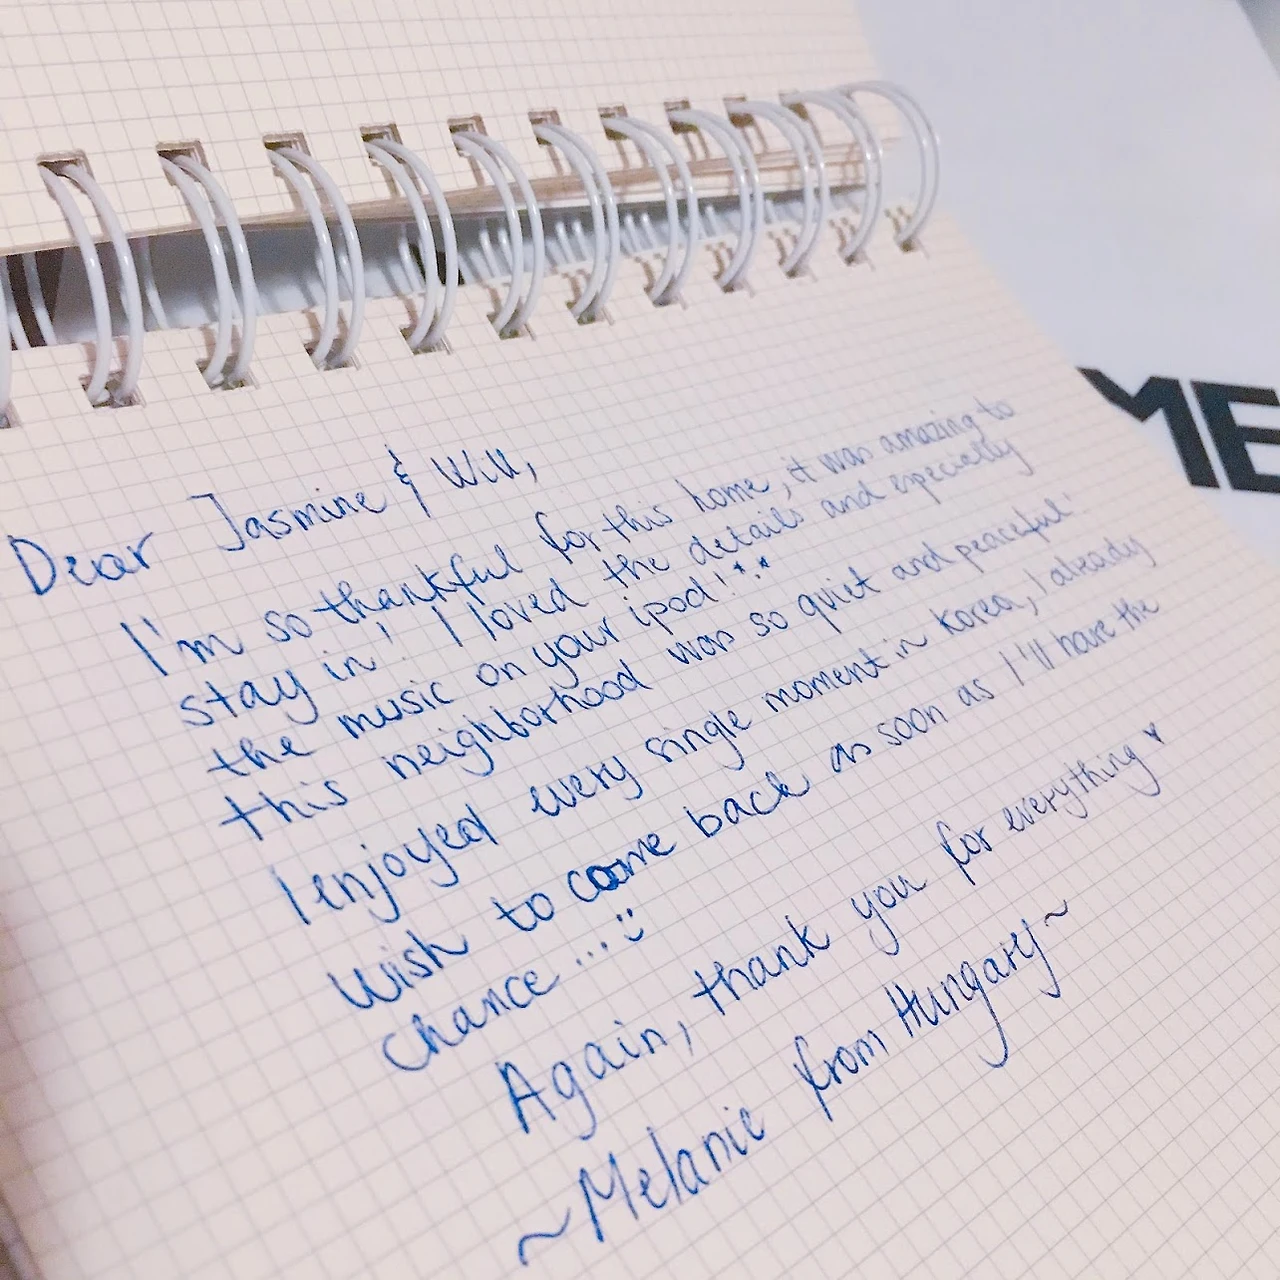 Dear Jasmine & Will,
I'm so thankful for this home, it was amazing to
stay in! I loved the details and especially
the music on your ipod!
this neighborhood was so quiet and peaceful!
I enjoyed every single moment in Korea, I already
wish to come back as soon as I'll have the
chance... :)
Again, thank you for everything ♥
~Melanie from Hungary~
ME